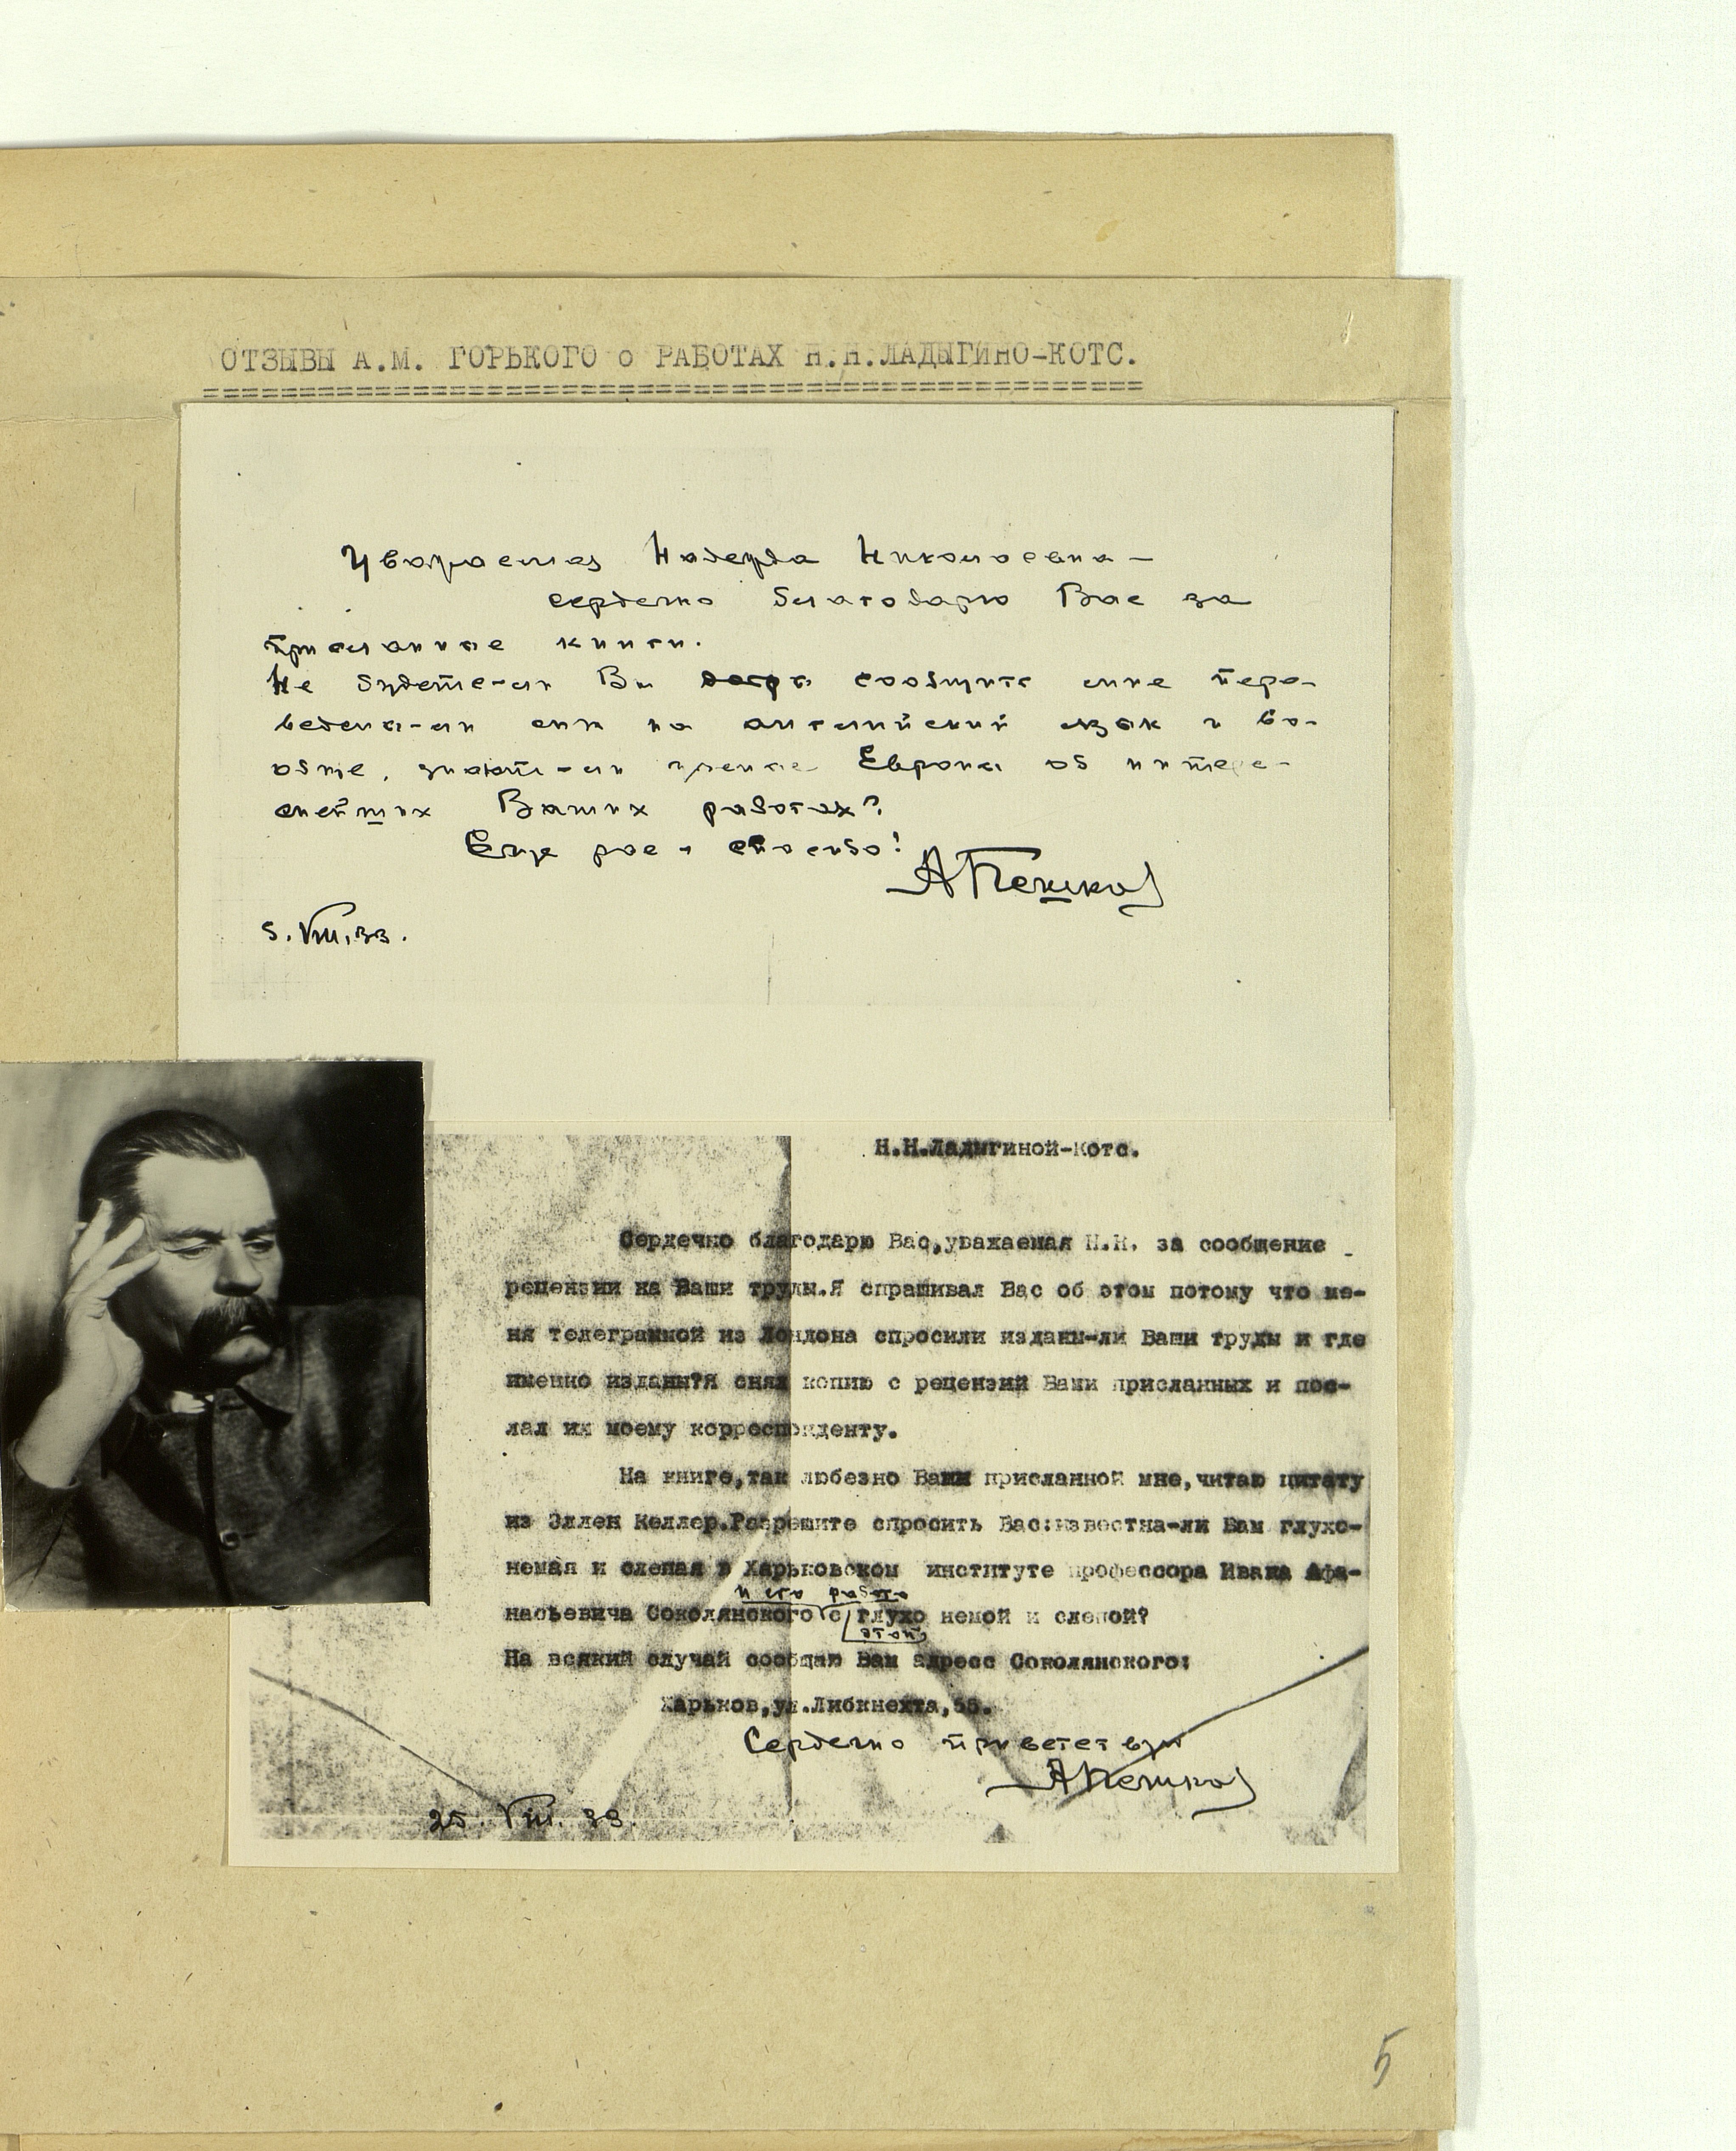 ОТЗЫВЫ А.М. ГОРЬКОГО о РАБОТАХ Н.Н.ЛАДЫГИНО-КОТС.
Уважаемая Надежда Николаевна –
сердечно благодарю Вас за
присланные книги.
Не будете-ли Вы сообщить мне пере-
ведены-ли они на английский язык и во-
обще, знают-ли ученые Европы об интере-
снейших Ваших работах?
Еще раз – спасибо!
А Пешков
5.VIII.33.
Н.Н.Ладыгиной-Котс.
Сердечно благодарю Вас,уважаемая Н.Н. за сообщение
рецензии на Ваши труды.Я спрашивал Вас об этом потому что ме-
ня телеграммой из Лондона спросили изданы-ли Ваши труды и где
именно изданы?Я снял копию с рецензий Вами присланных и пос-
лал их моему корреспонденту.
На книге,так любезно Вами присланной мне,читаю цитату
из Эллен Келлер.Разрешите спросить Вас:известна-ли Вам глухо-
немая и слепая в Харьковском институте профессора Ивана Афа-
и его работа
насьевича Соколянского с глухо немой и слепой?
этой
На всякий случай сообщаю Вам адресс Соколянского:
Харьков,ул.Либкнехта,
Сердечно приветствую
А Пешков
25. VIII. 33.
5